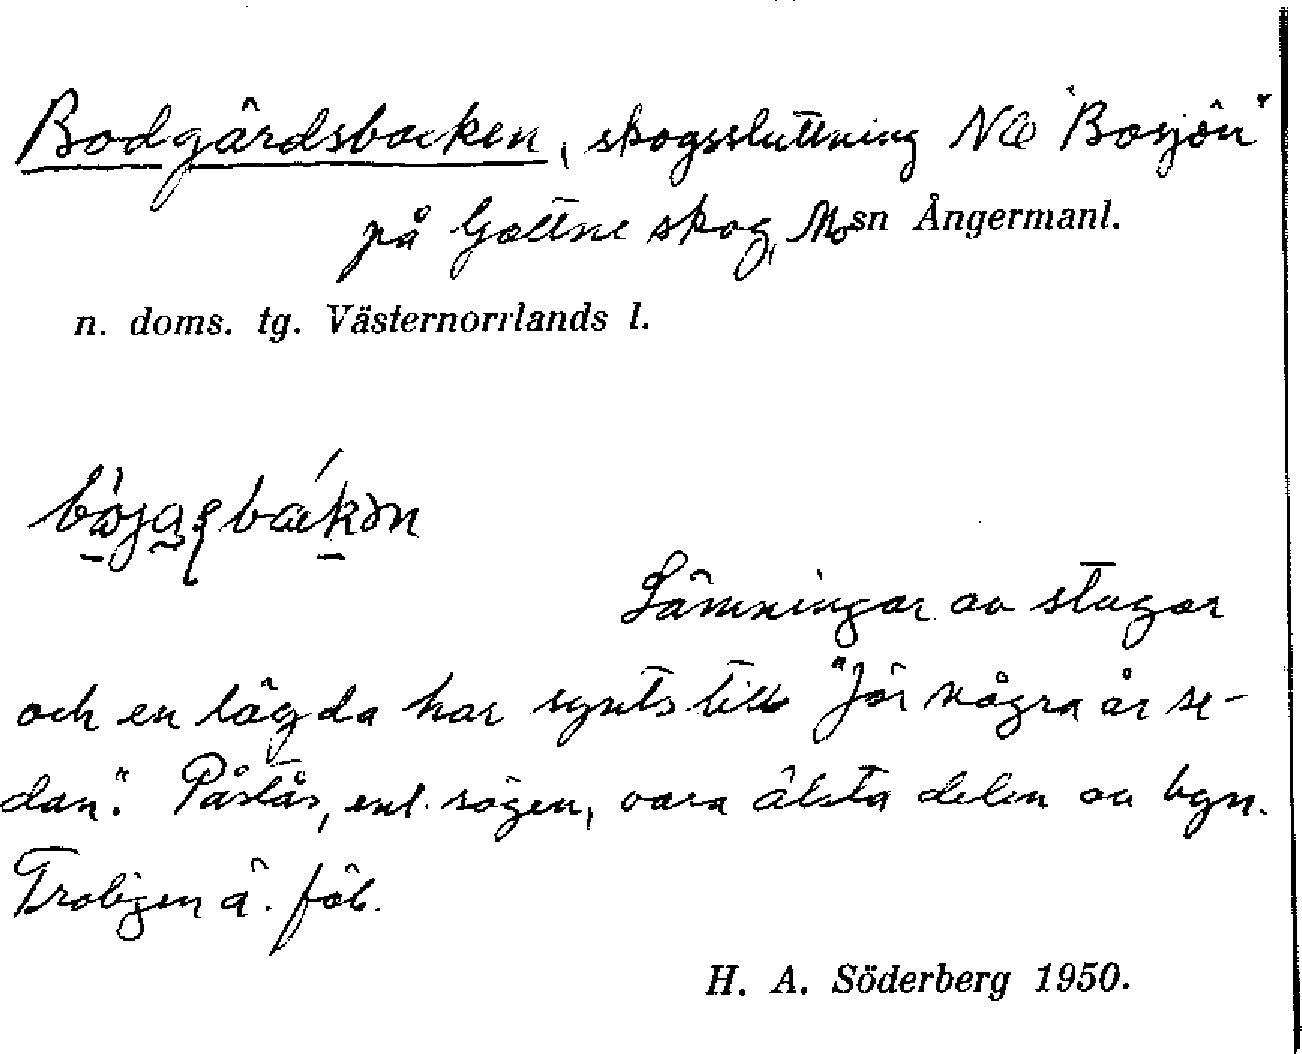 Bodgårdsbacken, skogssluttning NO "Bosjön"
på Gottne skog, Mo sn Ångermanl.
n. doms. tg. Västernorrlands l.
Lämningar av stugor
och en lägda har synts till "för några år se-
dan". Påstås, enl. sägen, vara älsta delen av byn.
Troligen ä. fäb.
H. A. Söderberg 1950.